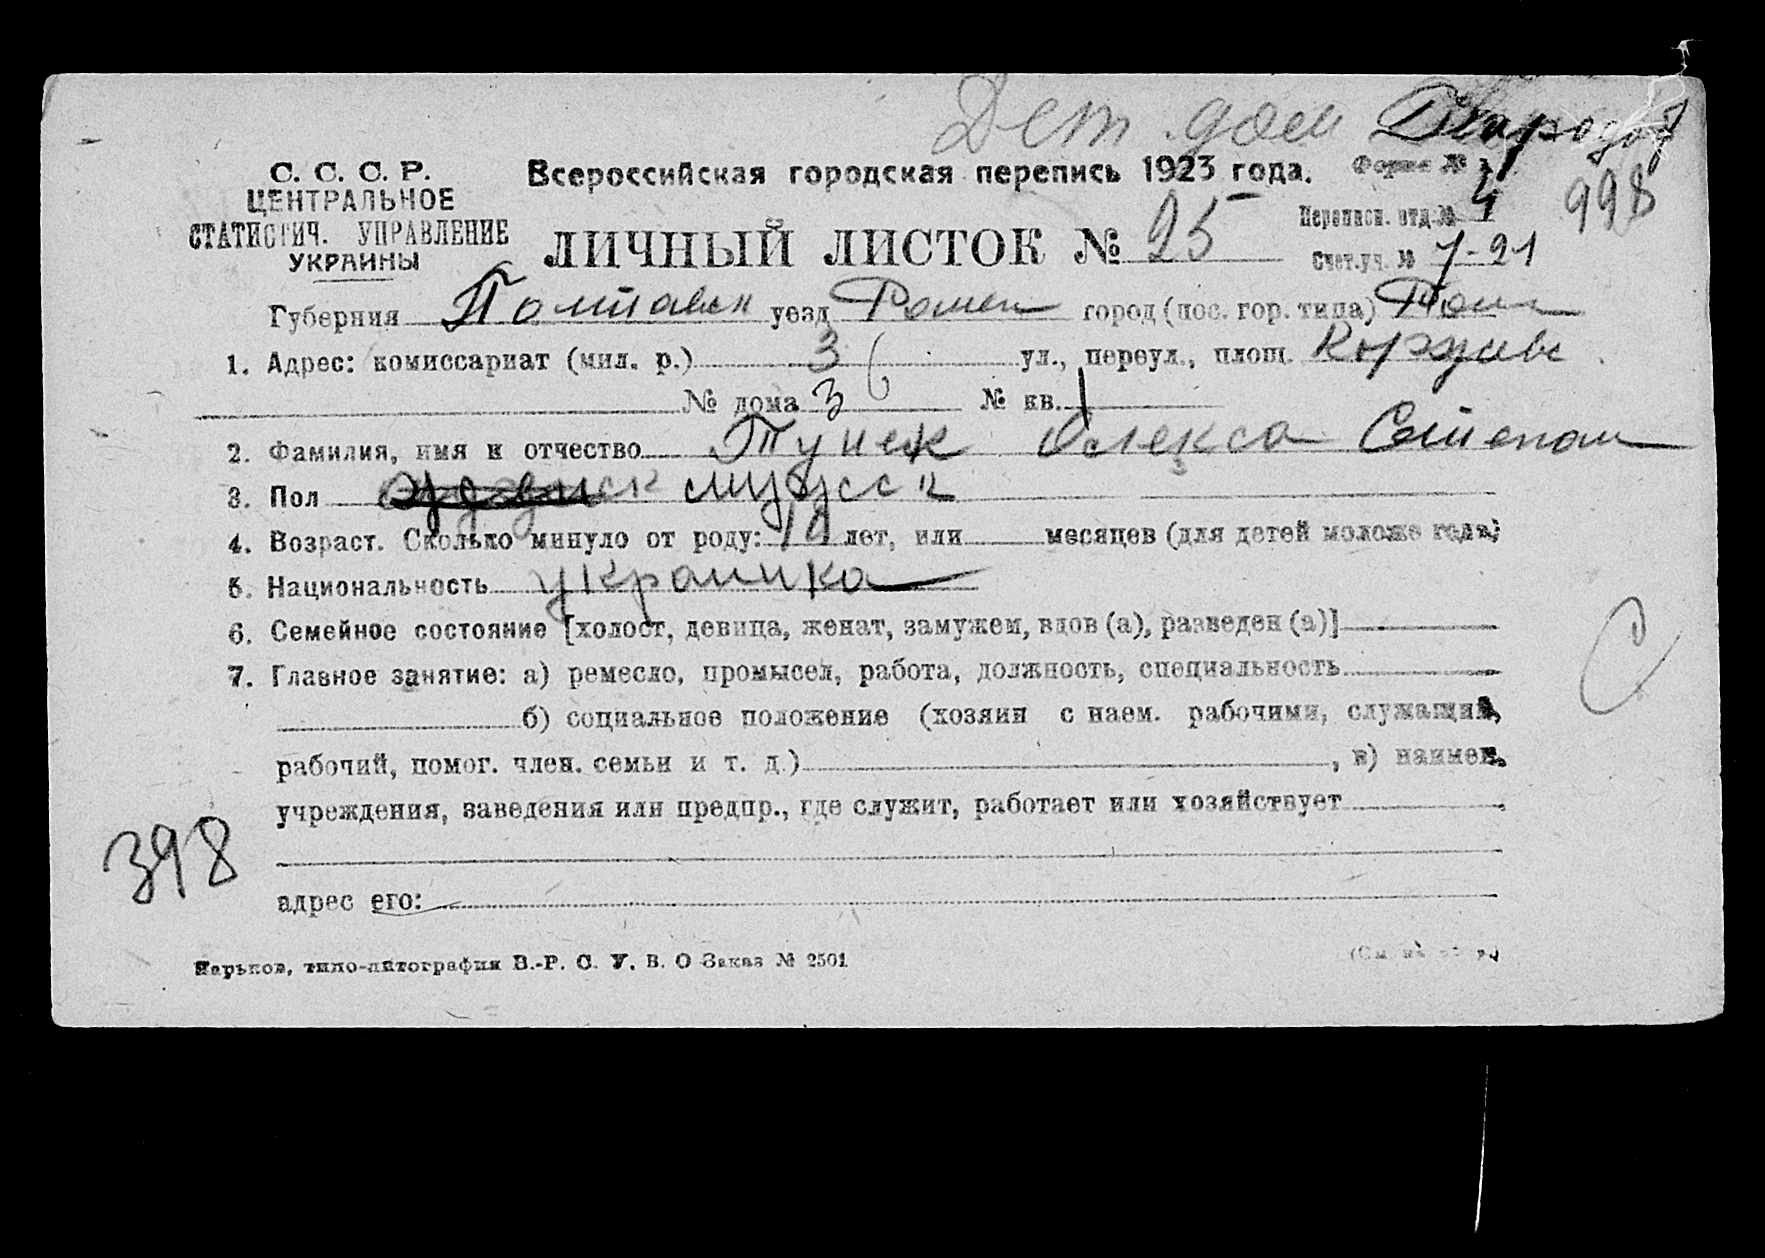 Дет. дом
С. С. С. Р.
ЦЕНТРАЛЬНОЕ
СТАТИСТИЧ. УПРАВЛЕНИЕ
УКРАИНЫ
Всероссийская городская перепись 1923 года. Форма №
998
ЛИЧНЫЙ ЛИСТОК № 25
Переписн. отд. № 4
Счет. уч. № 7-21
Губерния Полтавск уезд Ромен город (пос. гор. типа) Ром
1. Адрес: комиссариат (мил. р.) 3 ул., переул., площ.
№ дома 3 № кв. 1
2. Фамилия, имя и отчество Тунек Олекса Степан
3. Пол мужск
4. Возраст. Сколько минуло от роду: лет, или месяцев (для детей моложе года)
5. Национальность
6. Семейное состояние [холост, девица, женат, замужем, вдов (а), разведен (а)]
7. Главное занятие: а) ремесло, промысел, работа, должность, специальность
б) социальное положение (хозяин с наем. рабочими, служащий,
рабочий, помог. член. семьи и т. д.) , в) наимен.
учреждения, заведения или предпр., где служит, работает или хозяйствует
398
адрес его:
Харьков, типо-литография В.-Р. С. У. В. О Заказ № 2501